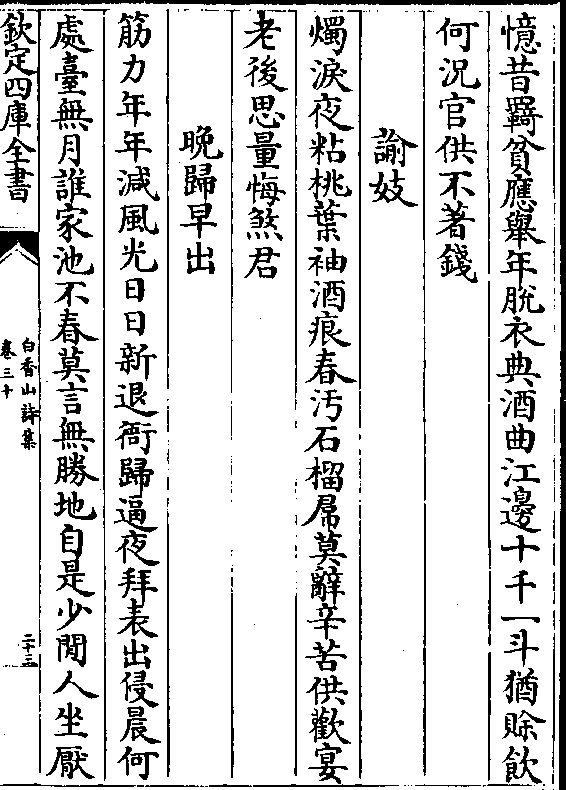 憶昔羇貧應舉年脫衣典酒曲江邊十千一斗猶賖飲
何況官供不著錢
諭妓
燭淚夜粘桃葉袖酒痕春汚石榴㡌莫辭辛苦供歡宴
老後思量悔煞君
晩歸早出
筋力年年減風光日日新退衙歸逼夜拜表出侵晨何
處臺無月誰家池不春莫言無勝地自是少閒人坐厭
欽定四庫全書
白香山詩集
卷三十
二十三